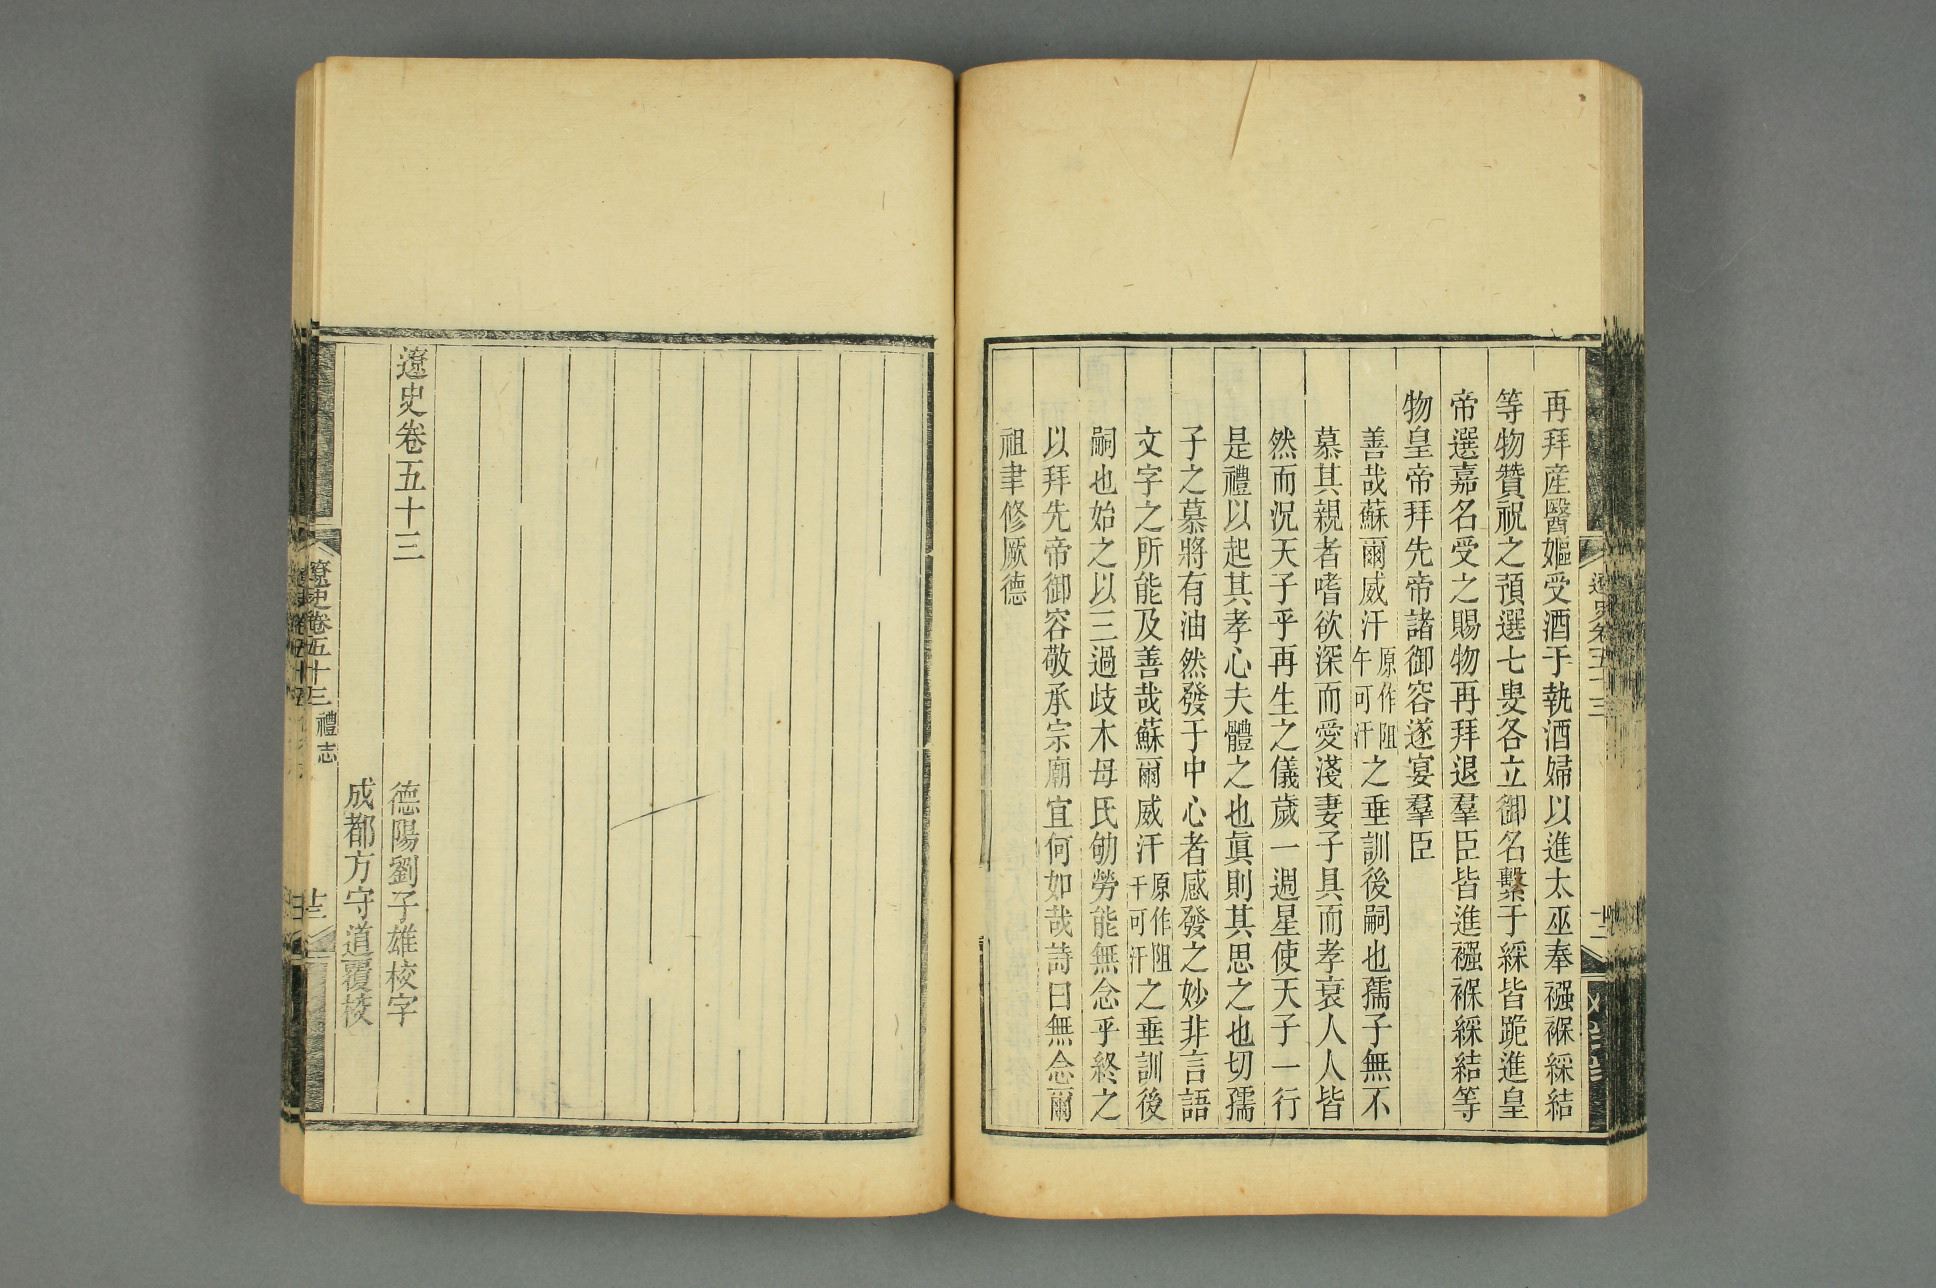 再拜産醫嫗受酒于執酒婦以進太巫奉襁褓綵結
等物贊祝之預選七叟各立御名繫于綵皆跪進皇
帝選嘉名受之賜物再拜退羣臣皆進襁褓綵結等
物皇帝拜先帝諸御容遂宴羣臣
善哉蘇爾威汗原作阻午可汗之垂訓後嗣也孺子無不
慕其親者嗜欲深而愛淺妻子具而孝衰人人皆
然而況天子乎再生之儀歲一週星使天子一行
是禮以起其孝心夫體之也眞則其思之也切孺
子之慕將有油然發于中心者感發之妙非言語
文字之所能及善哉蘇爾威汗原作阻干可汗之垂訓後
嗣也始之以三過歧木母氏劬勞能無念乎終之
以拜先帝御容敬承宗廟宜何如哉詩曰無念爾
祖聿修厥德
遼史卷五十三
遼史卷五十三
德陽劉子雄校字
成都方守道覆校
遼史卷五十三 禮志